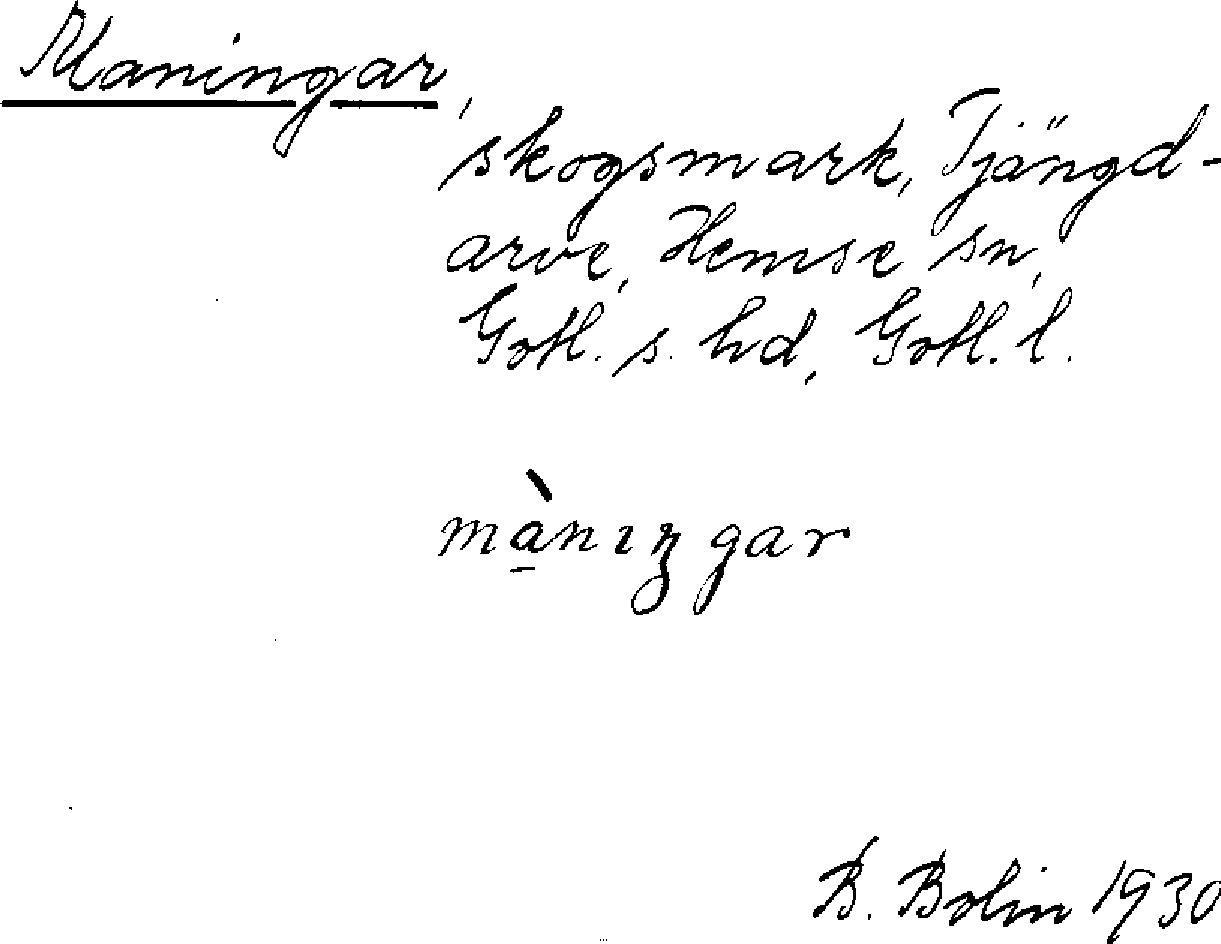 Maningar,
skogsmark, Tjängd-
arve, Hemse sn,
Gotl. s. hd, Gotl. l.
mànıŋgar
B. Bolin 1930